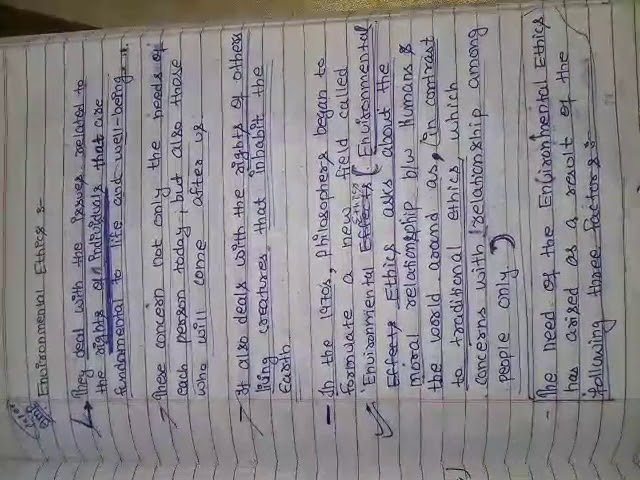 Environmental Ethics :-
They deal with the issues related to
the rights of individuals that are
fundamental to life and well-being.
These concern not only the needs of
each person today, but also those
who will come after us
It also deals with the rights of others
living creatures that inhabit the
Earth
- In the 1970s, philosophers began to
formulate a new field called
'Environmental Ethics (Environmental
Ethics asks about the
moral relationship b/w Humans &
the world around us, in contrast
to traditional ethics, which
concerns with relationship among
people only)
- The need of the Environmental Ethics
has arised as a result of the
following three factors :-